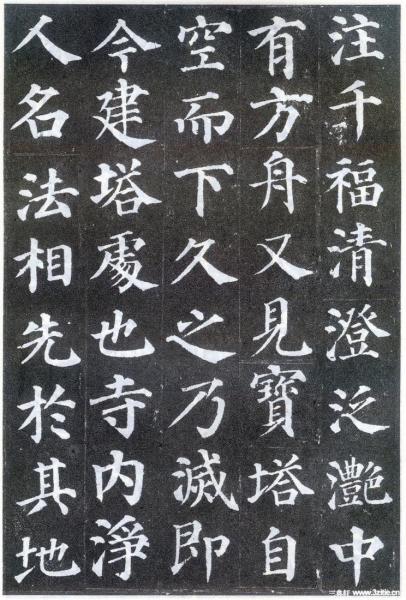 注千福清澄泛灔中
有方舟又見寶塔自
空而下久之乃滅即
今建塔處也寺内淨
人名法相先於其地
三字經 www.3zitie.cn